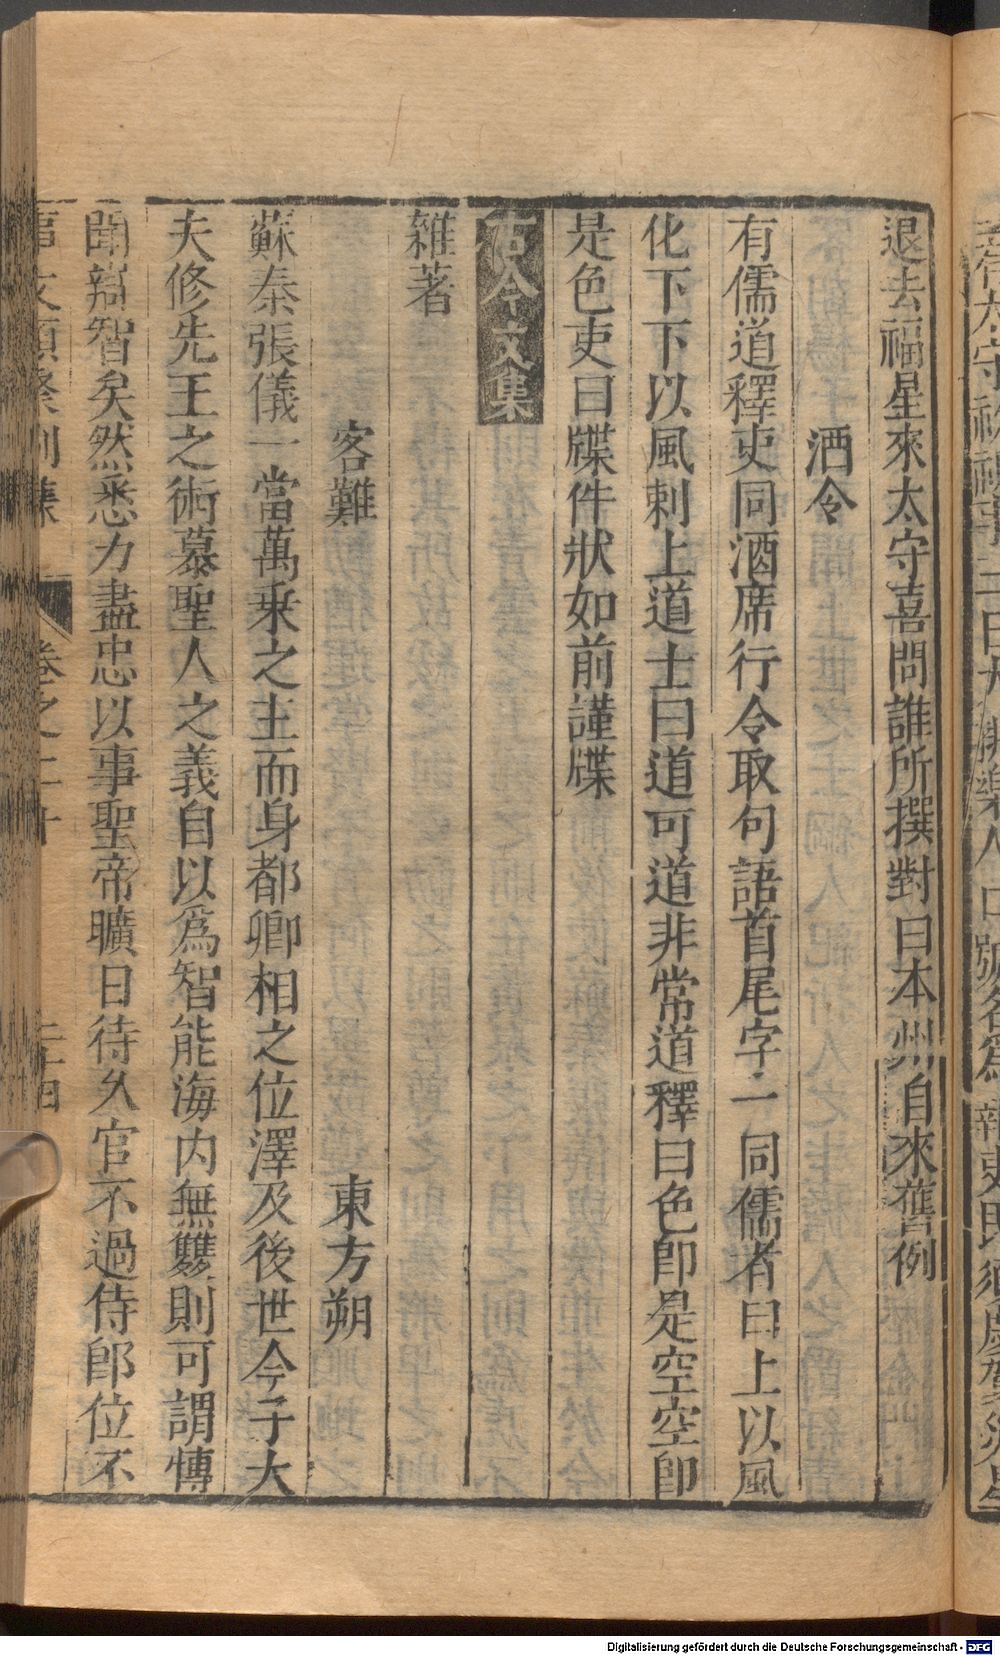 退去福星來太守喜問誰所撰對曰本州自來舊例
酒令
有儒道釋吏同酒席行令取句語首尾字一同儒者曰上以風
化下下以風刺上道士曰道可道非常道釋曰色卽是空空卽
是色吏曰牒件狀如前謹牒
古今文集
雜著
客難　東方朔
蘇秦張儀一當萬乗之主而身都卿相之位澤及後世今子大
夫修先王之術慕聖人之義自以爲智能海内無雙則可謂愽
聞辯智矣然悉力盡忠以事聖帝曠日待久官不過侍郎位不
事文類聚别集　卷之二十　二十四
Digitalisierung gefördert durch die Deutsche Forschungsgemeinschaft - DFG